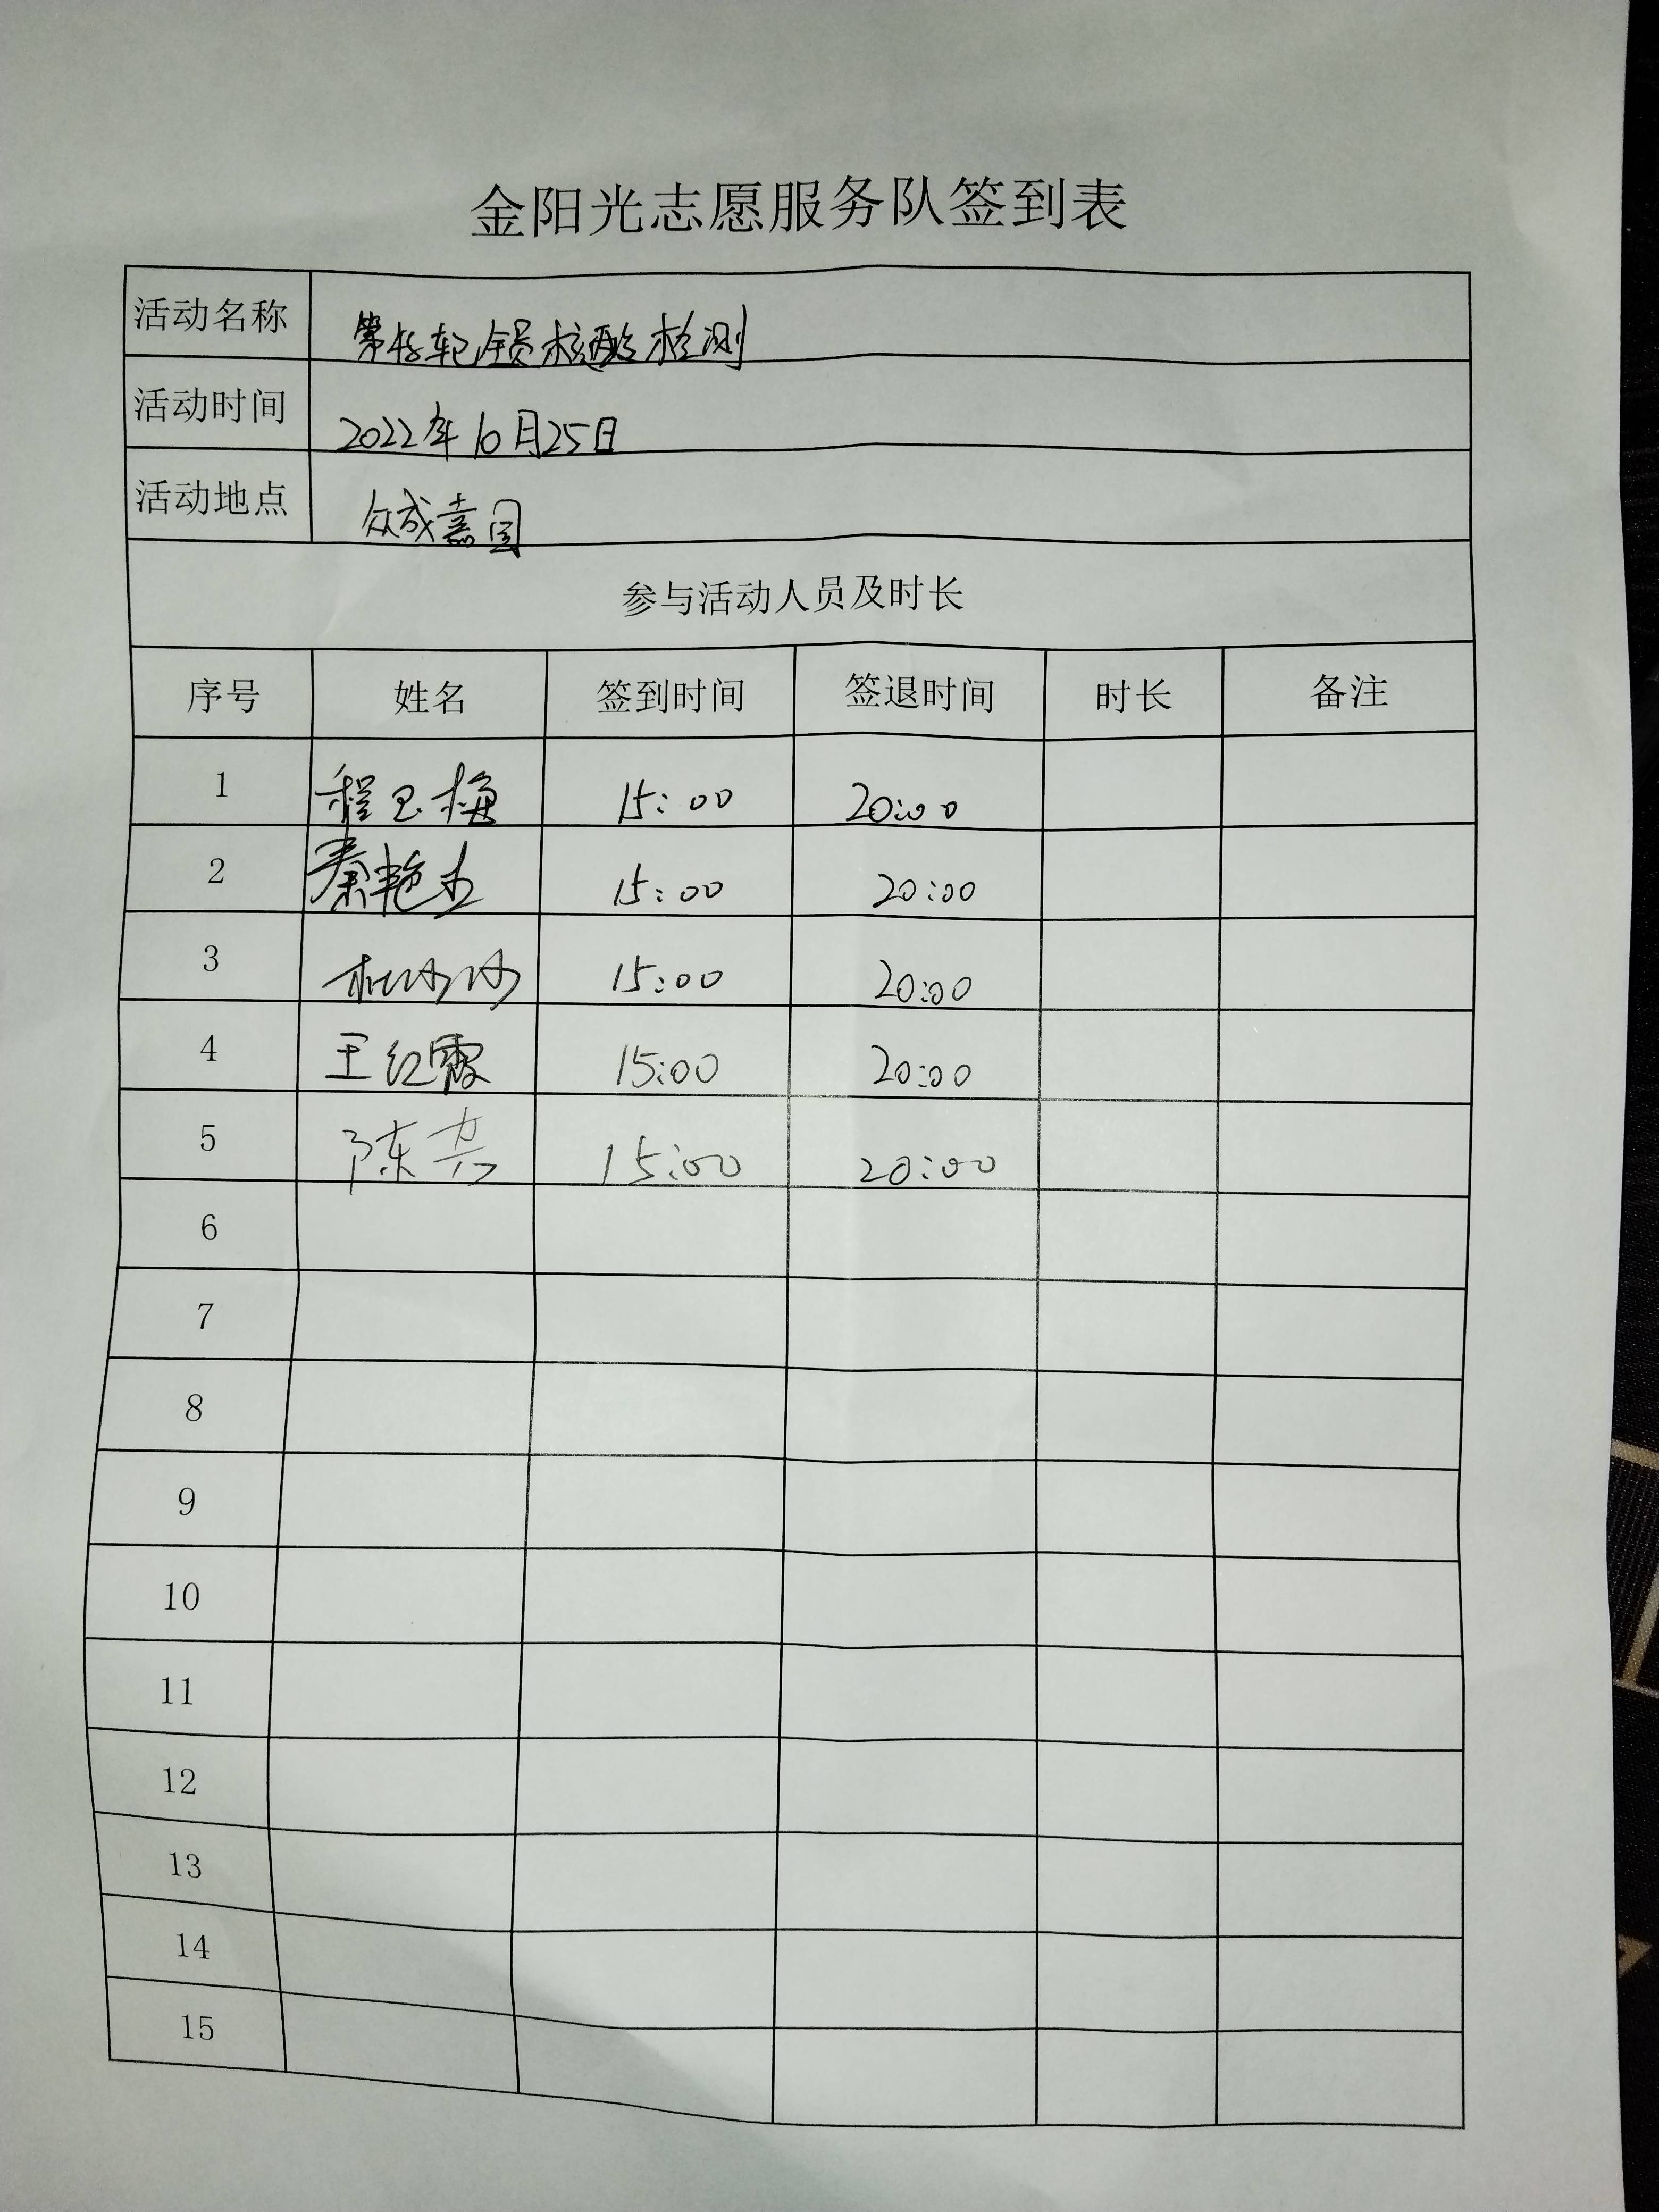 金阳光志愿服务队签到表
活动名称 第45轮全员核酸检测
活动时间 2022年10月25日
活动地点 众成嘉园
参与活动人员及时长
序号 姓名 签到时间 签退时间 时长 备注
1 程玉梅 15:00 20:00
2 秦艳 15:00 20:00
3 15:00 20:00
4 王红霞 15:00 20:00
5 陈 15:00 20:00
6
7
8
9
10
11
12
13
14
15